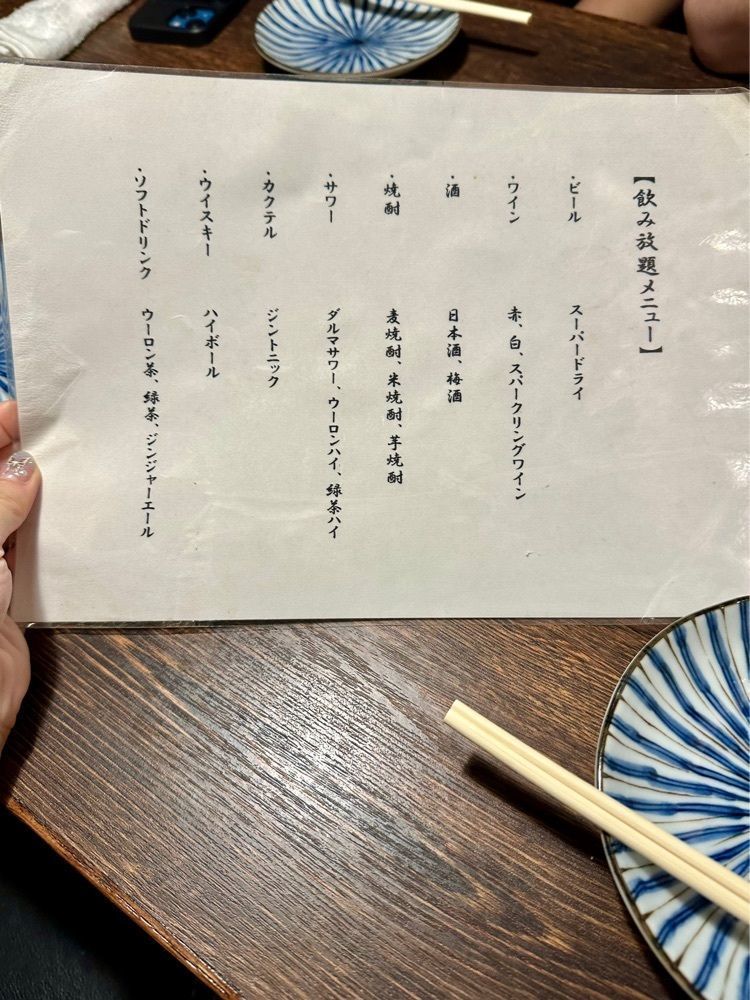 【飲み放題メニュー】
・ビール　スーパードライ
・ワイン　赤、白、スパークリングワイン
・酒　日本酒、梅酒
・焼酎　麦焼酎、米焼酎、芋焼酎
・サワー　ダルマサワー、ウーロンハイ、緑茶ハイ
・カクテル　ジントニック
・ウイスキー　ハイボール
・ソフトドリンク　ウーロン茶、緑茶、ジンジャーエール